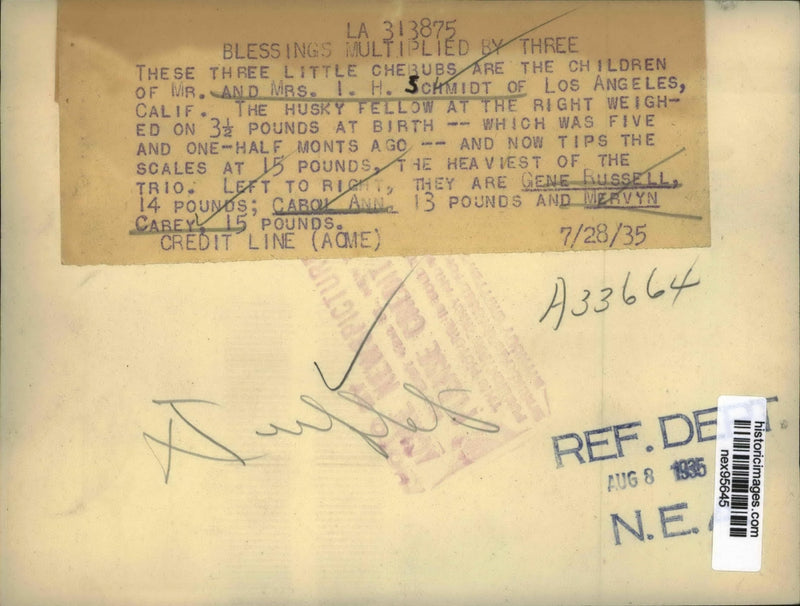 LA 313875
BLESSINGS MULTIPLIED BY THREE
THESE THREE LITTLE CHERUBS ARE THE CHILDREN
OF MR. AND MRS. I. H. SCHMIDT OF LOS ANGELES,
CALIF. THE HUSKY FELLOW AT THE RIGHT WEIGH-
ED ON 3½ POUNDS AT BIRTH -- WHICH WAS FIVE
AND ONE-HALF MONTS AGO -- AND NOW TIPS THE
SCALES AT 15 POUNDS, THE HEAVIEST OF THE
TRIO. LEFT TO RIGHT, THEY ARE GENE RUSSELL,
14 POUNDS; CAROL ANN, 13 POUNDS AND MERVYN
CAREY, 15 POUNDS.
CREDIT LINE (ACME) 7/28/35
A33664
REF. DEPT
AUG 8 1935
N.E.A
historicimages.com
nex95645